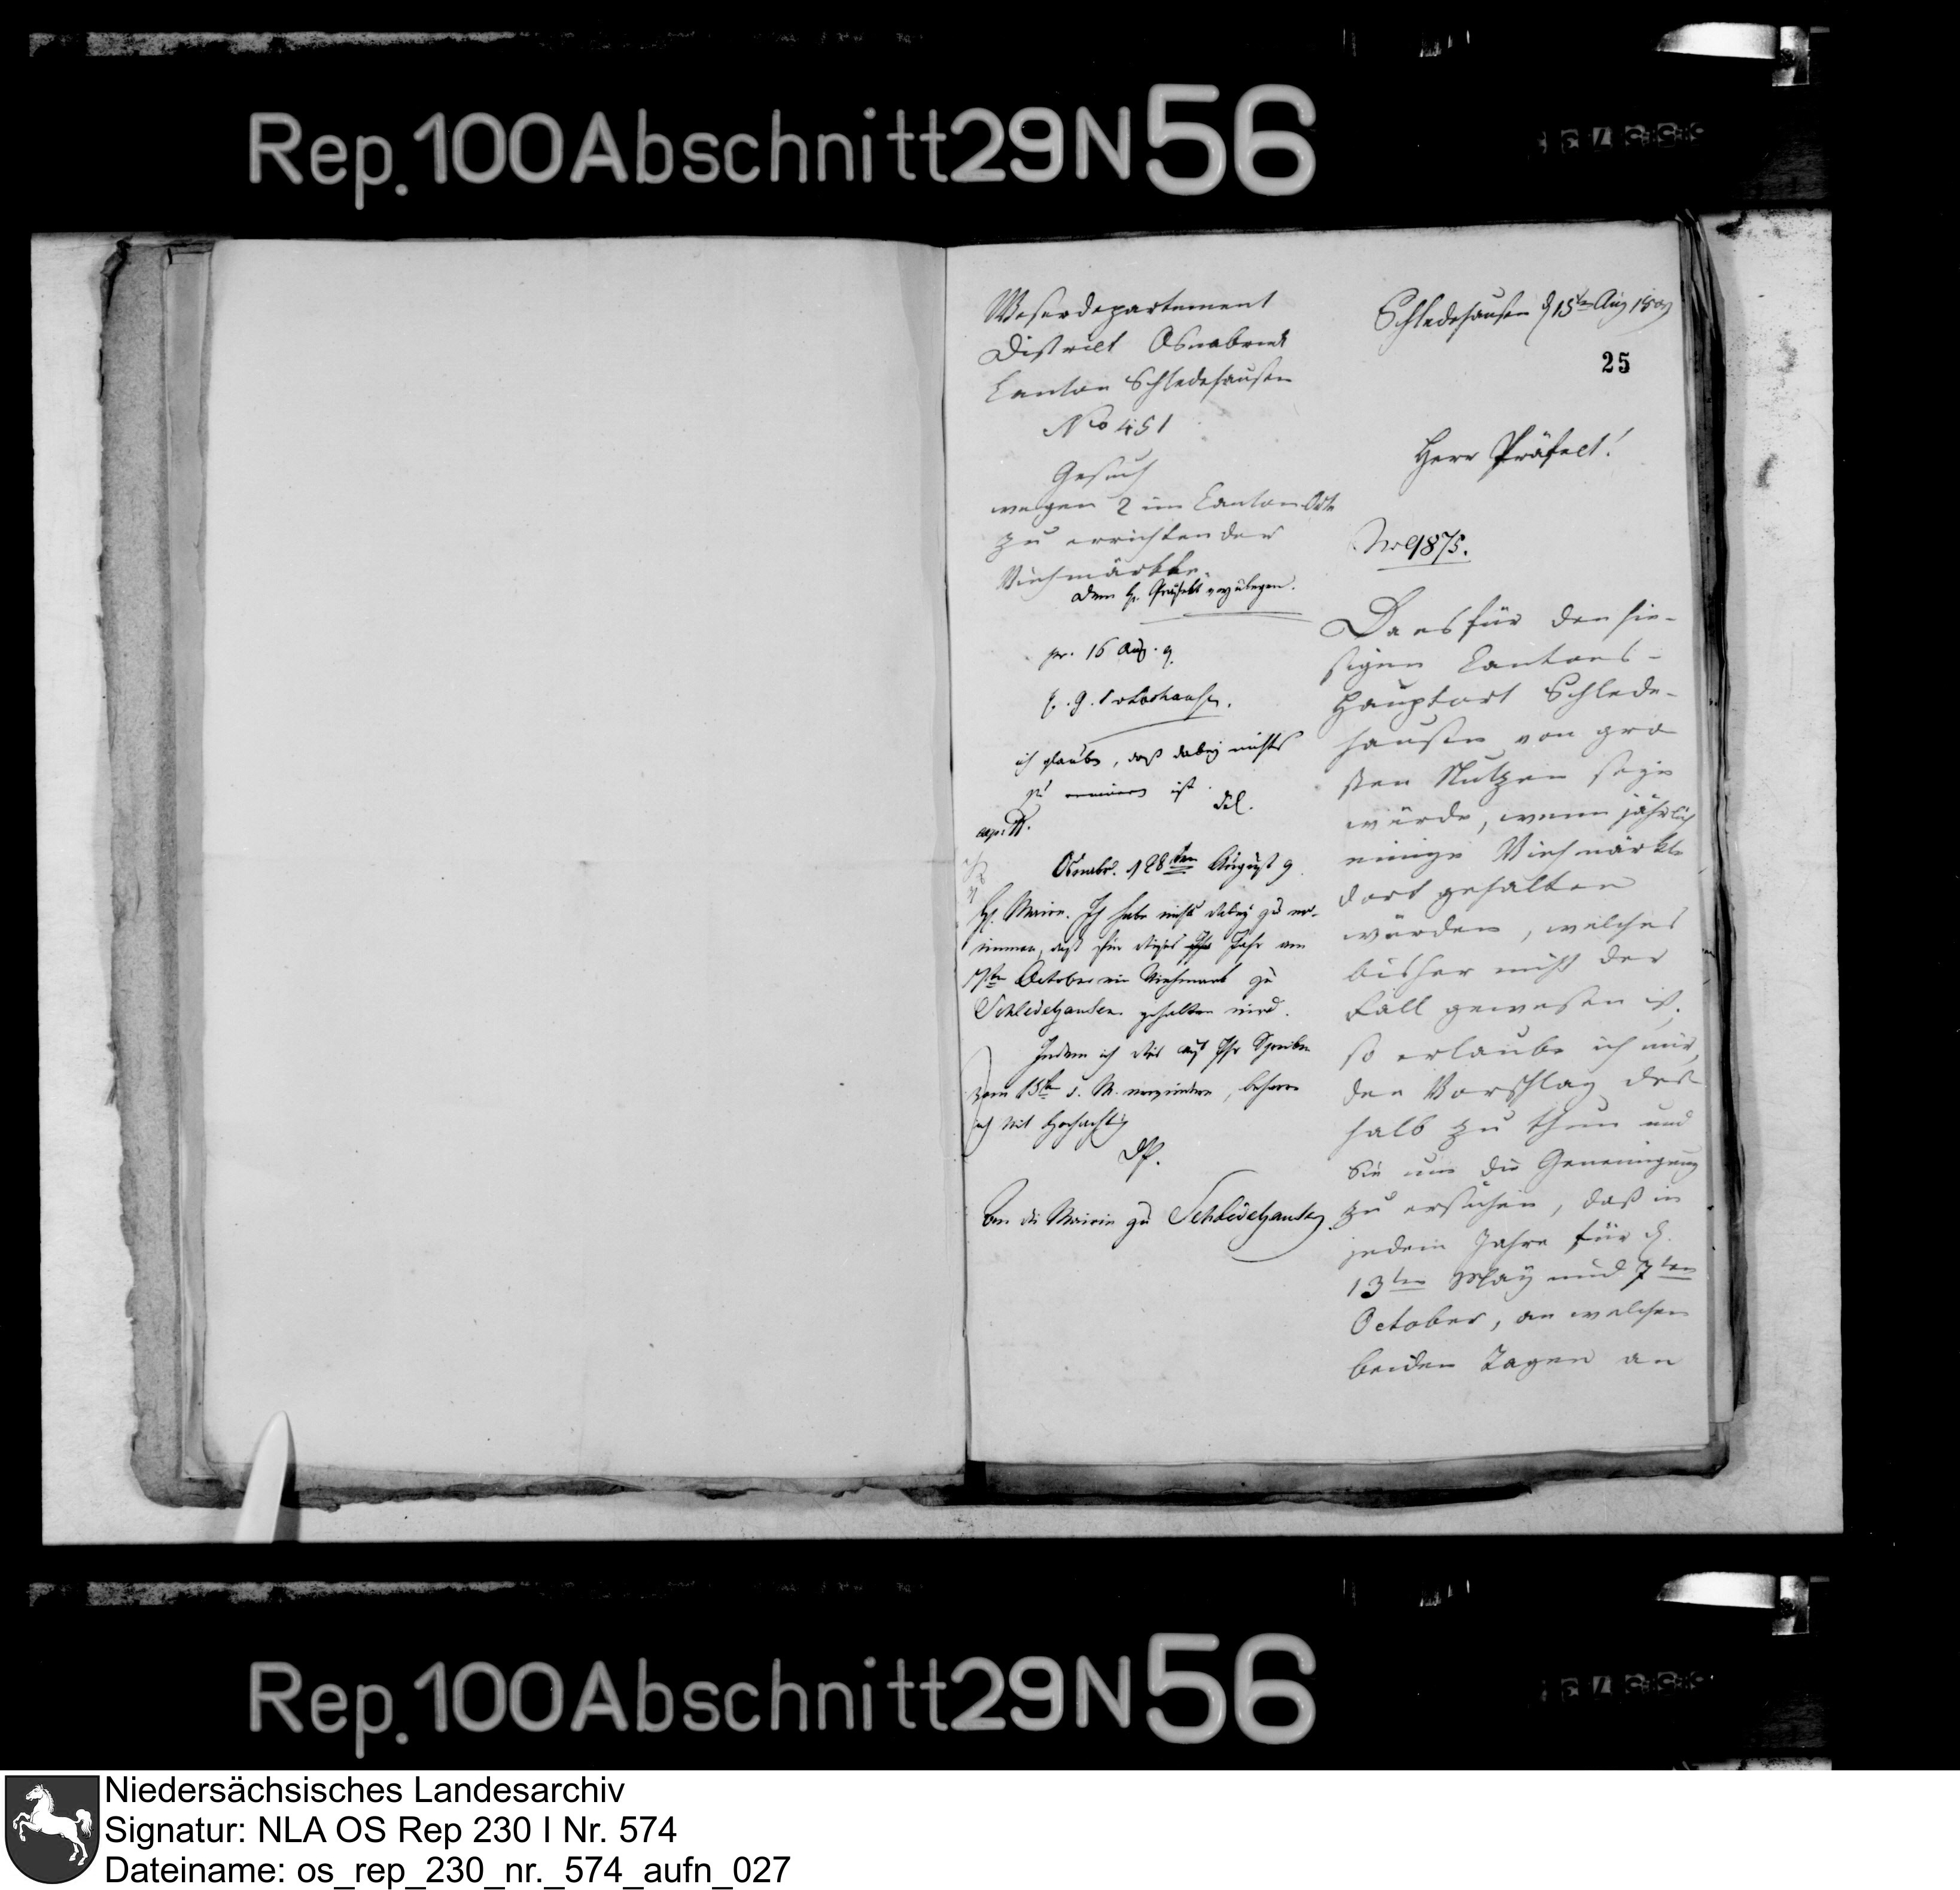 Rep. 100 Abschnitt 29 N 56
Weserdepartement
District Osnabrück
Canton Schledehausen
No 451
Gesuch
wegen 2 im Canton Orte
zu errichtender
Viehmärkte.
Dem H. Präfekt vorzulegen.
pr. 16 Aug. 9.
ich glaube, daß dabey nichts
zu ist
Osnabr. d 28ten August 9.
H. Maire. Ich habe nichts dabey zu er-
innern, daß für dieses Jahr am
7ten October ein Viehmarkt zu
Schledehausen gehalten wird.
Indem ich dies auf Ihr Schreiben
vom 15ten d. M. , beharre
ich mit Hochachtg
An die Mairie zu Schledehausen
Schledehausen d 15ten Aug 1809
25
Herr Präfect!
Nro 9875.
Da es für den hie-
sigen Cantons-
Hauptort Schlede-
hausen von gro
ßen Nutzen seyn
würde, wenn jährlich
einige Viehmärkte
dort gehalten
würden, welches
bisher nicht der
Fall gewesen ist,
so erlaube ich mir,
den Vorschlag des
halb zu thun und
Sie um die Genemigung
zu ersuchen, daß in
jedem Jahre für d.
13ten May und 7ten
October, an welchen
beiden Tagen an
Rep. 100 Abschnitt 29 N 56
Niedersächsisches Landesarchiv
Signatur: NLA OS Rep 230 I Nr. 574
Dateiname: os_rep_230_nr._574_aufn_027